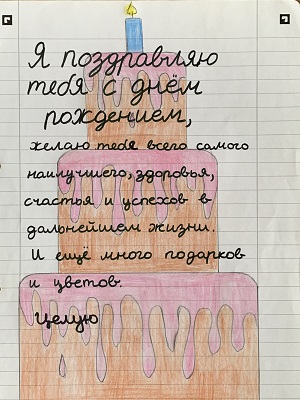 Я поздравляю
тебя с днём
рождением,
желаю тебе всего самого
наилучшего, здоровья,
счастья и успехов в
дальнейшем жизни.
И ещё много подарков
и цветов.
Целую